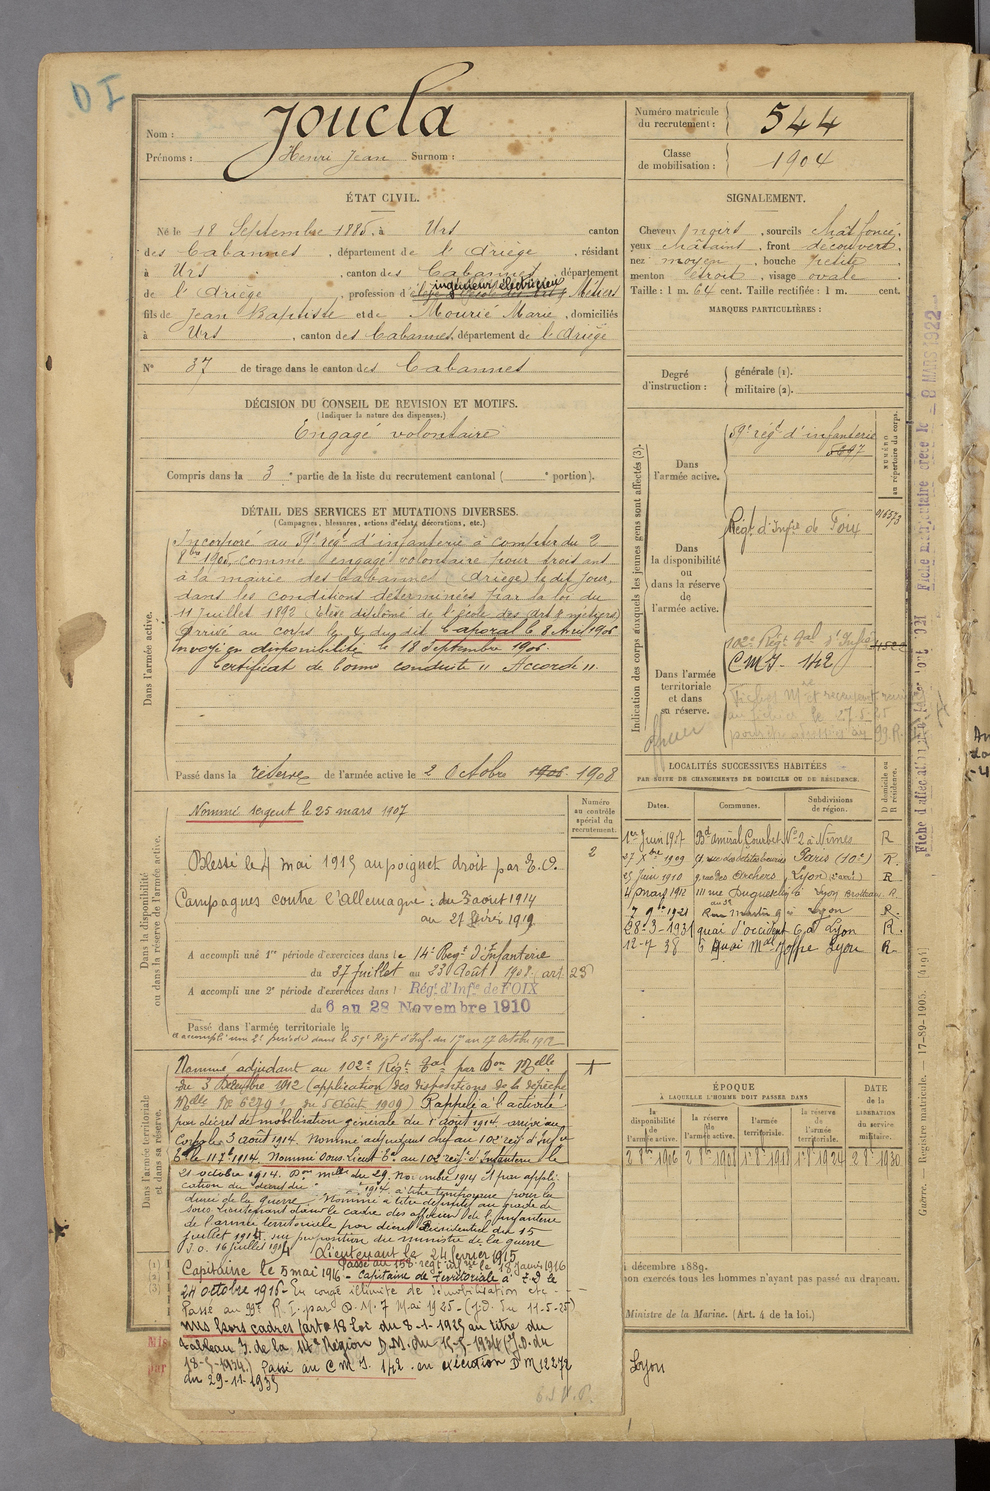 D I
Nom : Joucla
Prénoms : Henri Jean Surnom :
Numéro matricule du recrutement : 544
Classe de mobilisation : 1904
ÉTAT CIVIL.
Né le 18 Septembre 1885, à Urs canton
des Cabannes, département de l'Ariège, résidant
à Urs, canton des Cabannes, département
de l'Ariège, profession d'ingénieur électricien Métiers
fils de Jean Baptiste et de Mourie Marie, domiciliés
à Urs, canton des Cabannes, département de l'Ariège
N° 37 de tirage dans le canton des Cabannes
SIGNALEMENT.
Cheveux noirs, sourcils chat. foncé,
yeux châtains, front découvert,
nez moyen, bouche petite,
menton étroit, visage ovale
Taille : 1 m. 64 cent. Taille rectifiée : 1 m. cent.
MARQUES PARTICULIÈRES :
Degré d'instruction : générale (1).
militaire (2).
DÉCISION DU CONSEIL DE REVISION ET MOTIFS.
(Indiquer la nature des dispenses.)
Engagé volontaire
Compris dans la 3e partie de la liste du recrutement cantonal ( e portion).
DÉTAIL DES SERVICES ET MUTATIONS DIVERSES.
(Campagnes, blessures, actions d'éclat, décorations, etc.)
Dans l'armée active.
Incorporé au 59e rég.t d'infanterie à compter du 2
8bre 1905, comme engagé volontaire pour trois ans
à la mairie des Cabannes (Ariège) le dit jour,
dans les conditions déterminées par la loi du
11 Juillet 1892 (Elève diplômé de l'école des arts & métiers)
Arrivé au corps le 4 du dit Caporal le 8 Avril 1906
Envoyé en disponibilité le 18 Septembre 1906.
Certificat de bonne conduite " Accordé ".
Passé dans la réserve de l'armée active le 2 Octobre 1906 1908
Indication des corps auxquels les jeunes gens sont affectés (3).
NUMÉRO au répertoire du corps.
Dans l'armée active.
59e rég.t d'infanterie
5297
Dans la disponibilité ou dans la réserve de l'armée active.
Rég.t d'Inf.ie de Foix
Dans l'armée territoriale et dans sa réserve.
102e Rég.t Tal d'Infie
CMI - 142
Dans la disponibilité ou dans la réserve de l'armée active.
Nommé sergent le 25 mars 1907
Blessé le 4 mai 1915 au poignet droit par E.O.
Campagnes contre l'Allemagne : du 3 août 1914
au 21 février 1919
A accompli une 1re période d'exercices dans le 14e Reg.t d'Infanterie
du 27 juillet au 23 Août 1908 (art. 23)
A accompli une 2e période d'exercices dans l Rég.t d'Inf.ie de FOIX
du 6 au 28 Novembre 1910
Passé dans l'armée territoriale le
a accompli une 2e période dans le 59e Regt d'Inf. du 1er au 17 octobre 1912
Numéro au contrôle spécial du recrutement.
2
LOCALITÉS SUCCESSIVES HABITÉES
PAR SUITE DE CHANGEMENTS DE DOMICILE OU DE RÉSIDENCE.
Dates. Communes. Subdivisions de région. D domicile ou R résidence.
1er Juin 1907 Bd amiral Courbet, No 2 à Nîmes R
27 Xbre 1909 Paris (10e) R.
25 Juin 1910 Lyon R
4 mars 1912 111 rue Duguesclin à Lyon Brotteaux R
7 9bre 1921 Lyon R.
28-3-1931 quai d'occident 6 à Lyon R.
12-7 38 5 Quai Mal Joffre Lyon R.
Dans l'armée territoriale et dans sa réserve.
Nommé adjudant au 102e Régt Tal par Don Melle
du 3 Décembre 1912 (application des dispositions de la dépêche
Mlle No 6279 du 5 Août 1909) Rappelé à l'activité
par décret de mobilisation générale du 1er août 1914. arrivé au
Corps le 3 août 1914. Nommé adjudant chef au 102e regt d'Infie
Tle le 11 7bre 1914. Nommé Sous-Lieut. Tal au 102e régt d'Infanterie le
21 octobre 1914. Don mlle du 29 Novembre 1914 et par appli-
cation du décret du 1914 à titre temporaire pour la
durée de la guerre. Nommé à titre définitif au grade de
sous-lieutenant dans le cadre des officiers de l'infanterie
de l'armée territoriale par décret Présidentiel du 15
juillet 1914, sur proposition du ministre de la guerre
J.O. 16 juillet 1914 Lieutenant le 24 février 1915
Passé au 158e regt inf.ie le 18 janvier 1916
Capitaine le 5 mai 1916 - Capitaine de Territoriale à T.D. le
24 octobre 1916 - En congé illimité de démobilisation etc -
Passé au 99e R.I. par D.M. 7 Mai 1925 - (J.O. du 11-5-25)
Mis hors cadres (art. 18 Loi du 8-1-1925 au titre du
tableau J. de la 14e Région D.M. du 15-5-1934 (J.O. du
18-5-1934.) Passé au C M I. 142. en exécution D M 12272
du 29-11-1935
ÉPOQUE
À LAQUELLE L'HOMME DOIT PASSER DANS
la disponibilité de l'armée active. la réserve de l'armée active. l'armée territoriale. la réserve de l'armée territoriale.
DATE de la LIBÉRATION du service militaire.
2 8bre 1906 2 8bre 1908 1er 8bre 1918 1er 8bre 1924 2 8bre 1930
décembre 1889.
non exercés tous les hommes n'ayant pas passé au drapeau.
Ministre de la Marine. (Art. 4 de la loi.)
(1)
(2)
(3)
Mis
par
Lyon
Guerre. — Registre matricule. — 17-89-1905. [4494]
8 MARS 1922